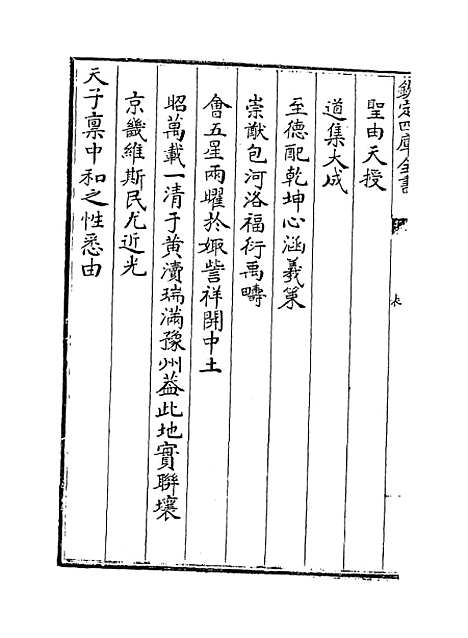 欽定四庫全書
表
聖由天授
道集大成
至德配乾坤心涵羲策
崇猷包河洛福衍禹疇
會五星兩曜於娵訾祥開中土
昭萬載一清于黄瀆瑞滿豫州葢此地實聯壤
京畿維斯民尤近光
天子禀中和之性悉由